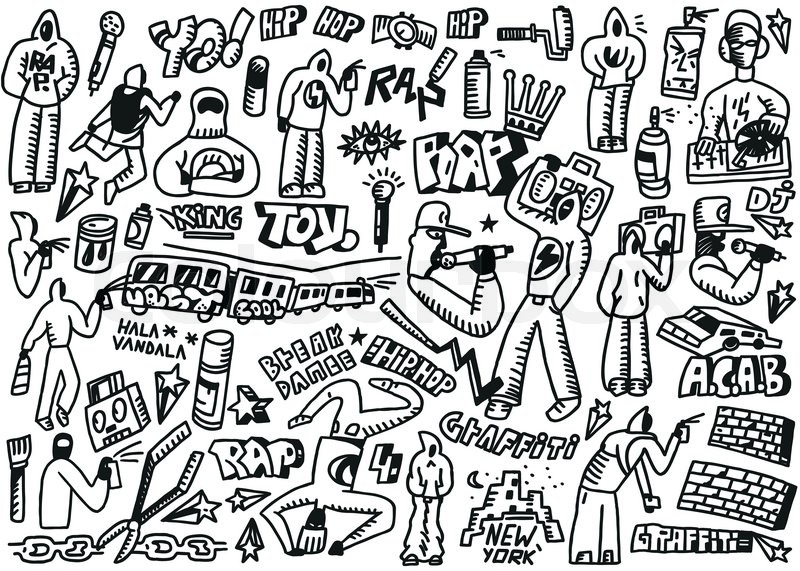 RAP.
YO!
HIP HOP
HIP
RAP
RAP
KING
TOY.
DJ
COOL
HALA
VANDALA
BREAK
DANCE
HIPHOP
A.C.A.B
GRAFFITI
RAP
NEW
YORK
GRAFFITI